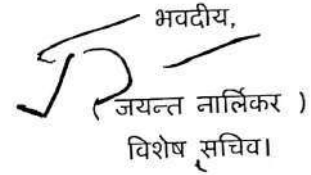 भवदीय,
( जयन्त नार्लिकर )
विशेष सचिव।